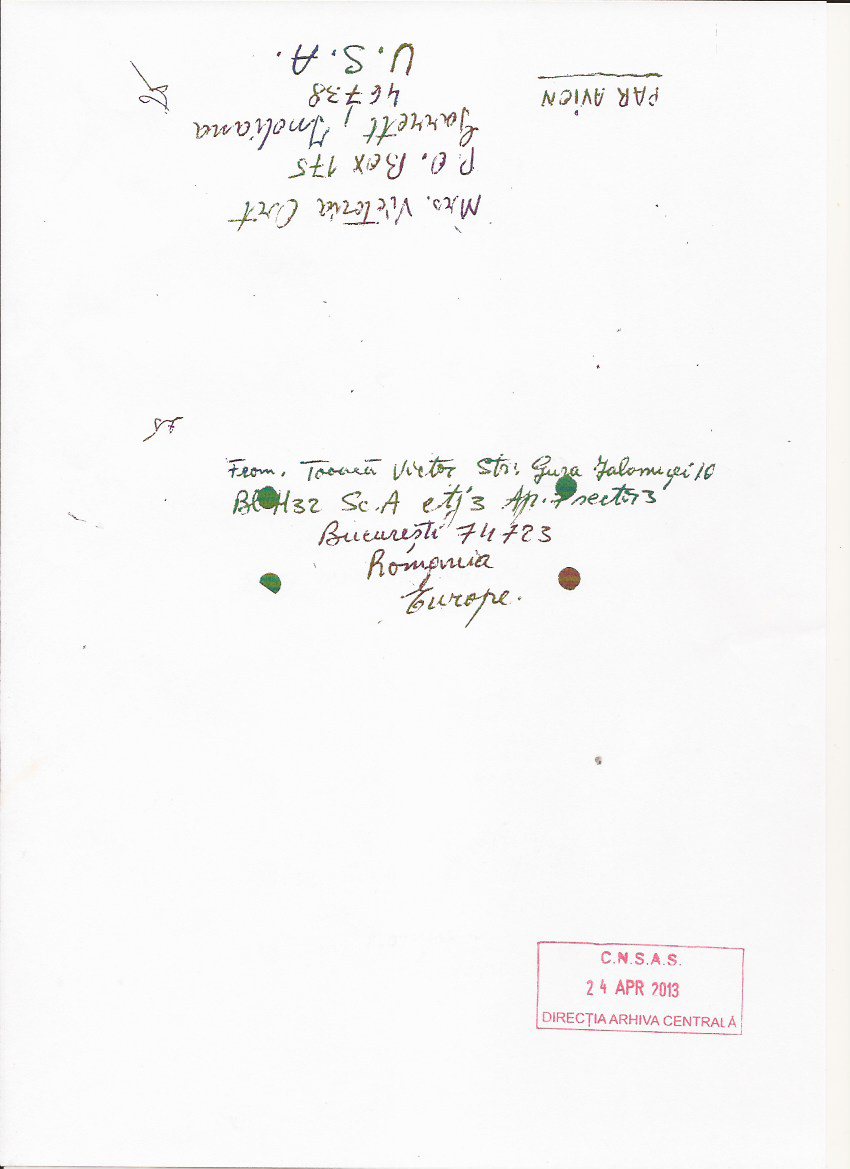 PAR AVION
Mrs. Victoria Ort
P.O. Box 175
Garrett, Indiana
46738
U.S.A.
From. Victor Str: Gura Ialomiței 10
Bl H32 Sc. A etj 3 Ap. 7 sector 3
București 74723
România
Europe.
C.N.S.A.S.
24 APR 2013
DIRECȚIA ARHIVA CENTRALĂ